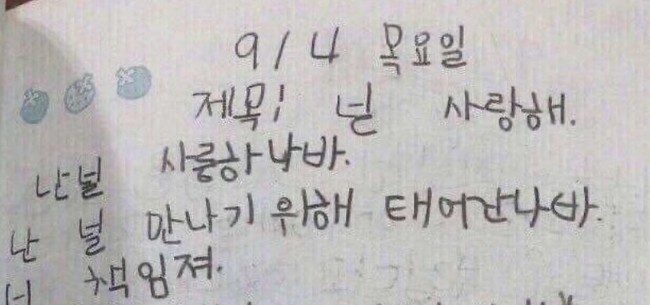 9/4 목요일
제목! 넌 사랑해.
난널 사릉하나바.
난 널 만나기 위해 태어난나바.
너 책임져.